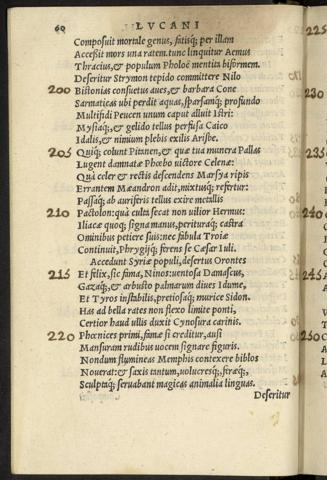 60 LVCANI
Composuit mortale genus, fatisq; per illam
Accessit mors una ratem. tunc linquitur Aemus
Thracius, & populum Pholoë mentita biformem.
Deseritur Strymon tepido committere Nilo
200 Bistonias consuetus aues, & barbara Cone
Sarmaticas ubi perdit aquas, sparsamq; profundo
Multifidi Peucen unum caput alluit Istri:
Mysiaq;, & gelido tellus perfusa Caico
Idalis, & nimium plebis exilis Arisbe.
205 Quiq; colunt Pitnen, & quæ tua munera Pallas
Lugent damnatæ Phœbo uictore Celenæ:
Quà celer & rectis descendens Marsya ripis
Errantem Mæandron adit, mixtusq; refertur:
Passaq; ab auriferis tellus exire metallis
210 Pactolon: quà culta secat non uilior Hermus:
Iliacæ quoq; signa manus, perituraq; castra
Ominibus petiere suis: nec fabula Troiæ
Continuit, Phrygijq; ferens se Cæsar Iuli.
Accedunt Syriæ populi, desertus Orontes
215 Et felix, sic fama, Ninos: uentosa Damascus,
Gazaq;, & arbusto palmarum diues Idume,
Et Tyros instabilis, pretiosaq; murice Sidon.
Has ad bella rates non flexo limite ponti,
Certior haud ullis duxit Cynosura carinis.
220 Phœnices primi, famæ si creditur, ausi
Mansuram rudibus uocem signare figuris.
Nondum flumineas Memphis contexere biblos
Nouerat: & saxis tantum, uolucresq;, feræq;,
Sculptaq; seruabant magicas animalia linguas.
Deseritur
225
235
245
250